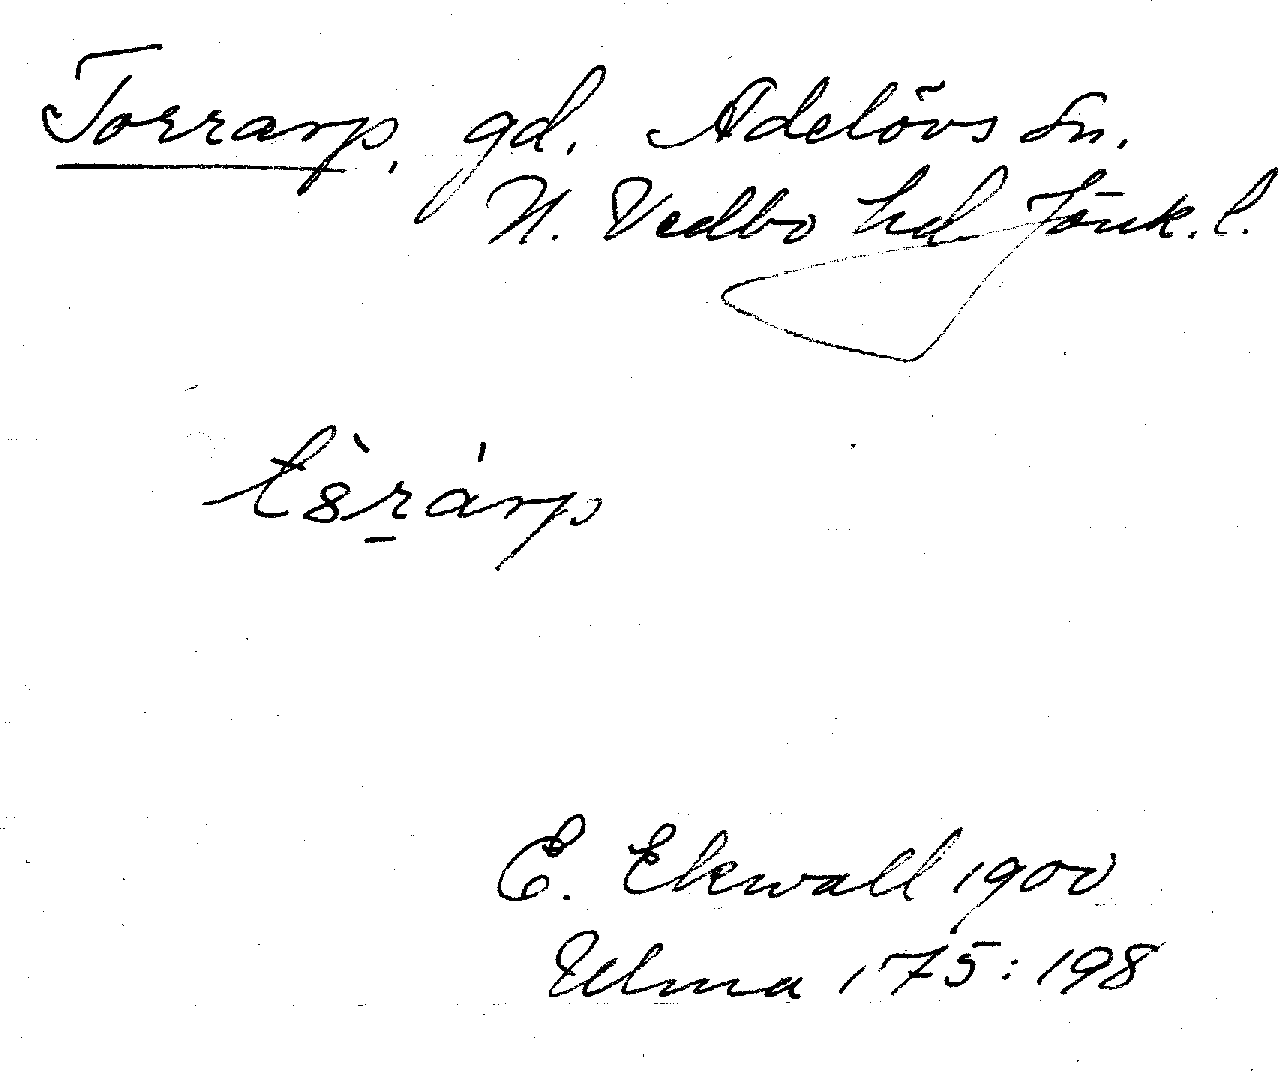 Torrarp, gd. Adelövs sn.
N. Vedbo hd Jönk. l.
t8̀r̲árp
E. Ekwall 1900
Ulma 175:198